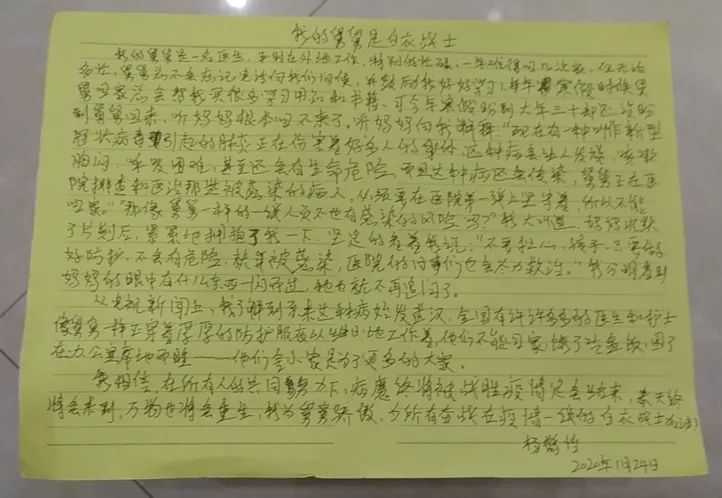 我的舅舅是白衣战士
我的舅舅是一名医生，平时在外地工作，特别的忙碌，一年难得回几次家，但无论
多忙，舅舅总不会忘记电话向我们问候，并鼓励我好好学习，每年寒假时候舅
舅回家总会帮我买很多学习用品和书籍。可今年寒假盼到大年三十却没盼
到舅舅回来，听妈妈说舅舅回不来了。听妈妈向我解释："现在有一种叫作新型
冠状病毒引起的肺炎正在伤害着好多人的身体，这种病会让人发烧，咳嗽
胸闷，呼吸困难，甚至还会有生命危险，而且这种病还会传染，舅舅正在医
院排查和医治那些被感染的病人，必须要在医院第一线上坚守着，所以不能
回家。""那像舅舅一样的一线人员不也有感染的风险吗？"我大叫道，妈妈沉默
了片刻后，紧紧地拥抱了我一下，坚定的看着我说："不要担心，孩子，只要做
好防护，不会有危险，就算被感染，医院的同事们也会尽力救治。"我分明看到
妈妈的眼中有什么东西一闪而过，她也就不再追问了。
从电视新闻上，我了解到原来这种病始发武汉，全国有许许多多的医生和护士
像舅舅一样正穿着厚厚的防护服夜以继日地工作着，他们不能回家，饿了吃盒饭，困了
在办公室席地而睡——他们舍小家是为了更多的大家。
我相信，在所有人的共同努力下，病魔终将被战胜，疫情定会结束，春天终
将会来到，万物也将会重生，我为舅舅骄傲，为所有奋战在疫情一线的白衣战士
2020年11月24日